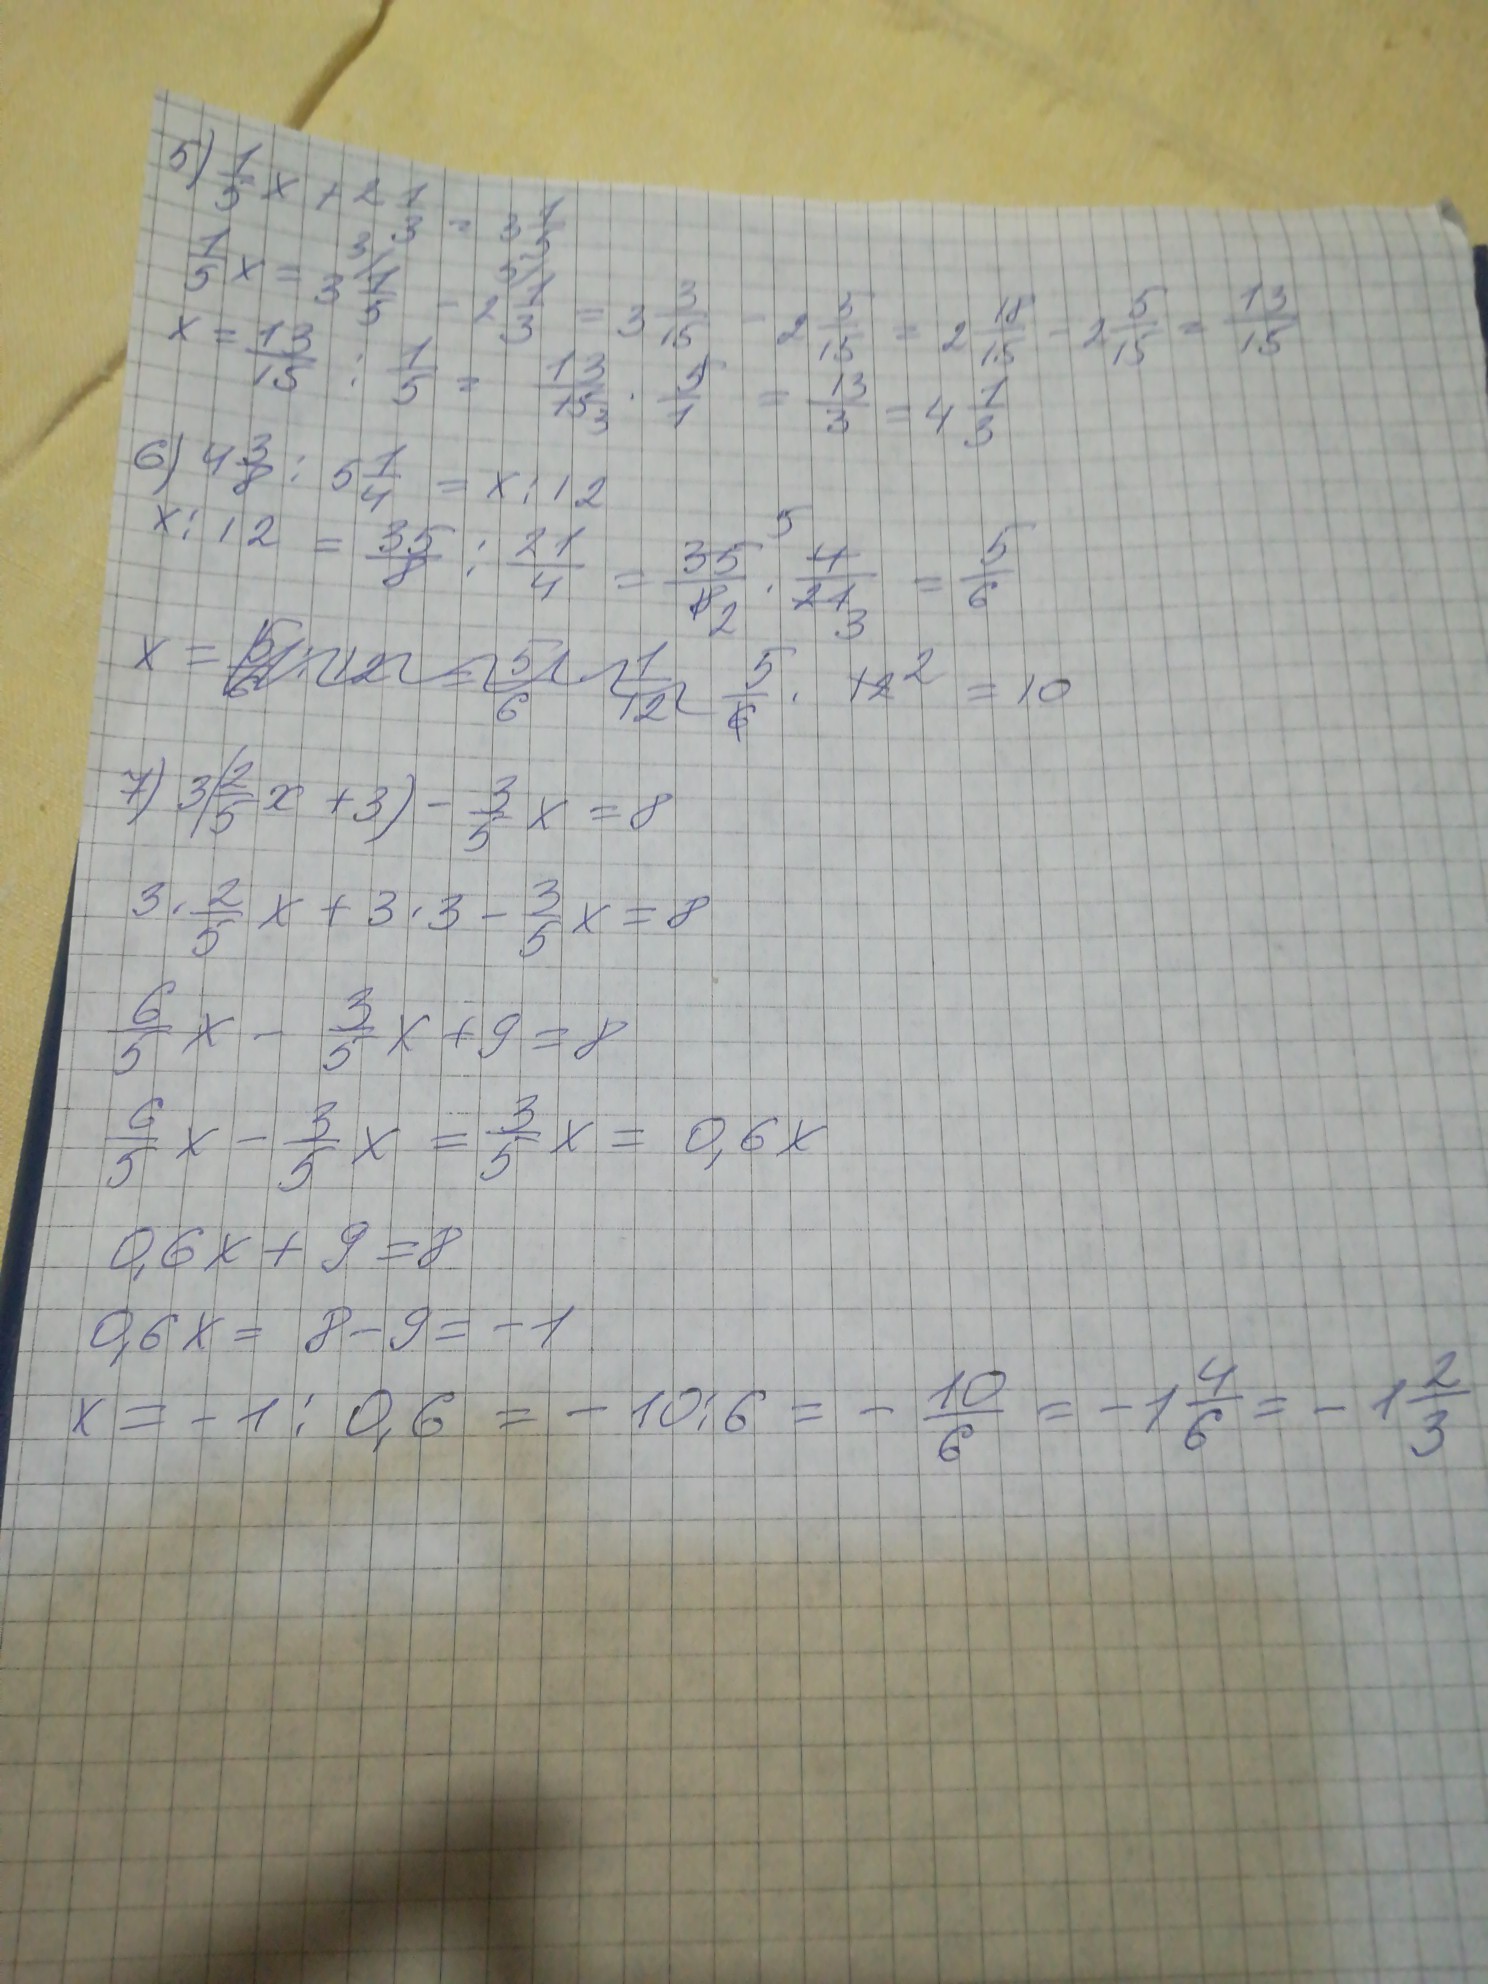 5) 1/5 x + 2 1/3 = 3 1/5
1/5 x = 3 1/5 - 2 1/3 = 3 3/15 - 2 5/15 = 2 18/15 - 2 5/15 = 13/15
x = 13/15 : 1/5 = 13/15 · 5/1 = 13/3 = 4 1/3
6) 4 3/8 : 5 1/4 = x : 12
x : 12 = 35/8 : 21/4 = 35/8 · 4/21 = 5/6
x = 5/6 · 12 = 10
7) 3(2/5 x + 3) - 3/5 x = 8
3 · 2/5 x + 3 · 3 - 3/5 x = 8
6/5 x - 3/5 x + 9 = 8
6/5 x - 3/5 x = 3/5 x = 0,6x
0,6x + 9 = 8
0,6x = 8 - 9 = -1
x = -1 : 0,6 = -10 : 6 = - 10/6 = -1 4/6 = -1 2/3